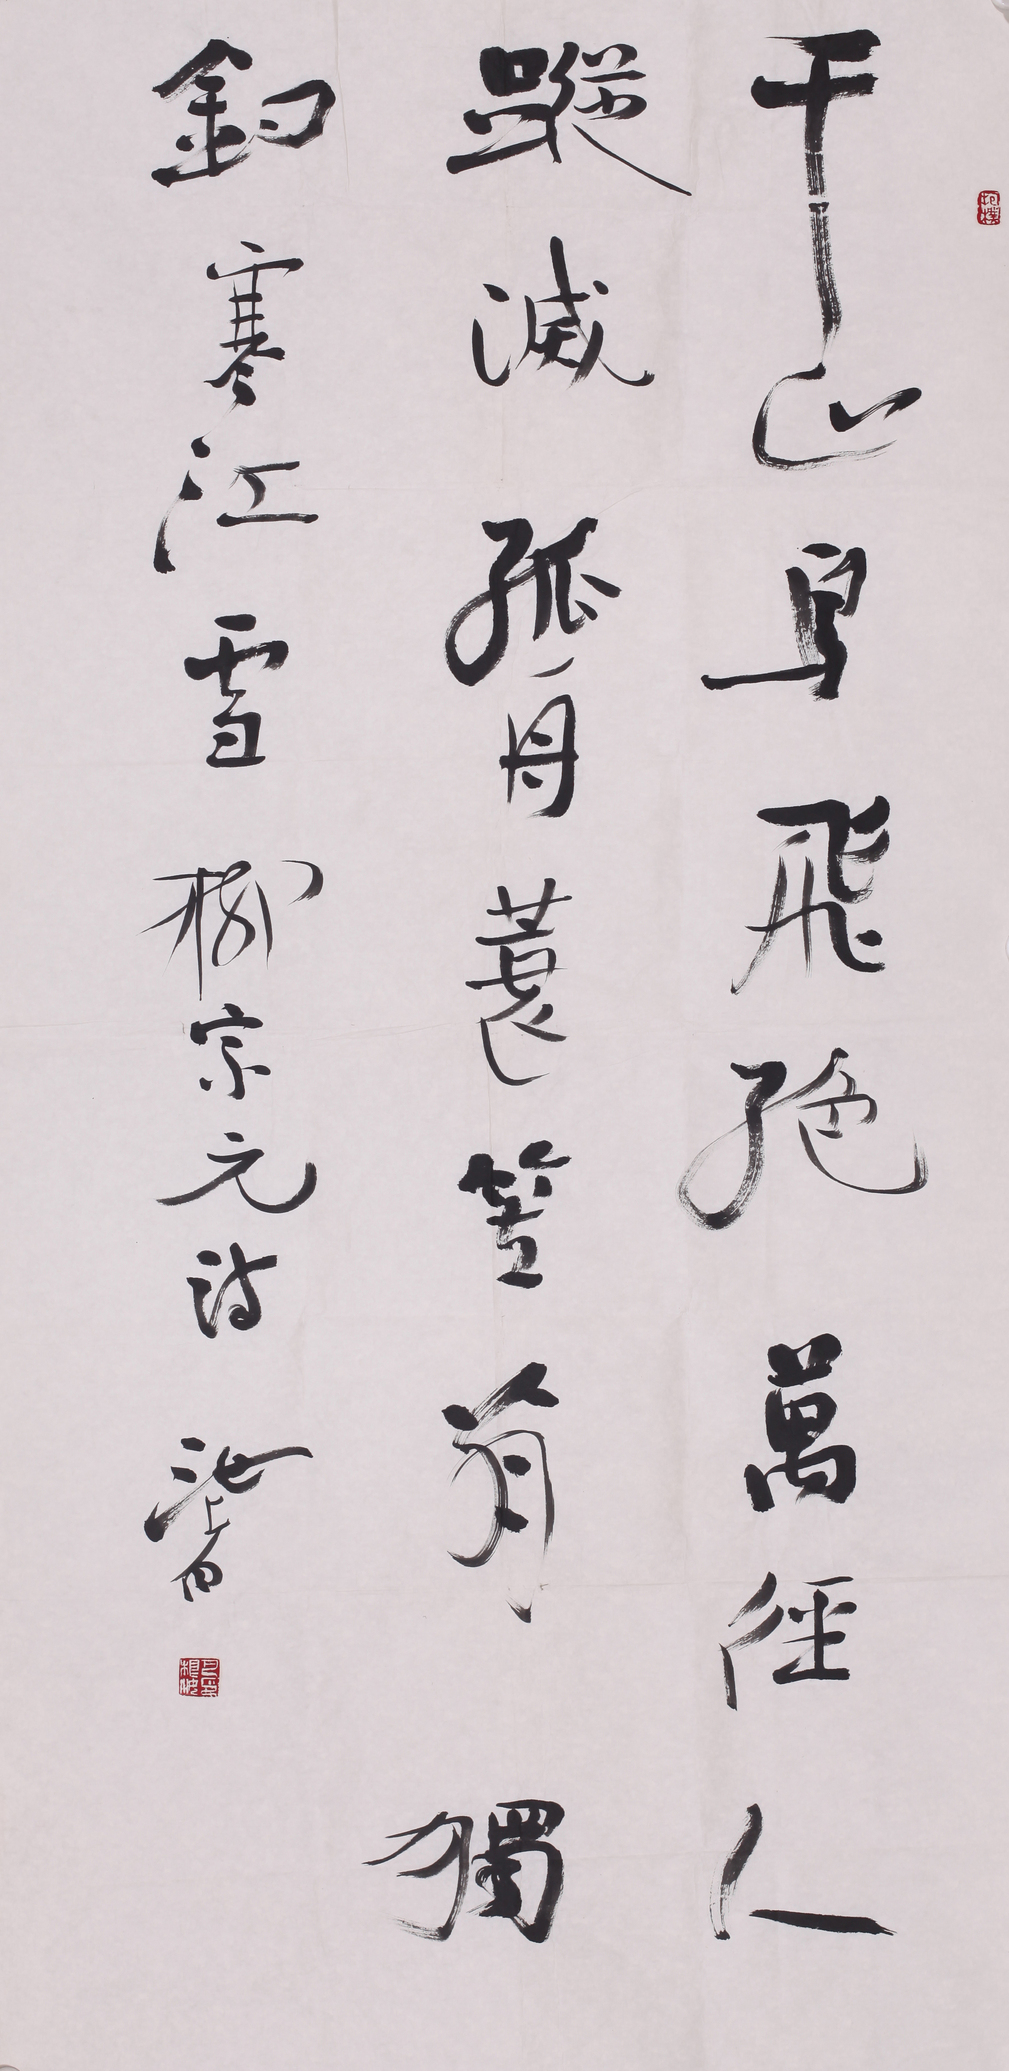 抱樸
千山鳥飛絶萬徑人
蹤滅孤舟蓑笠翁獨
釣寒江雪柳宗元詩